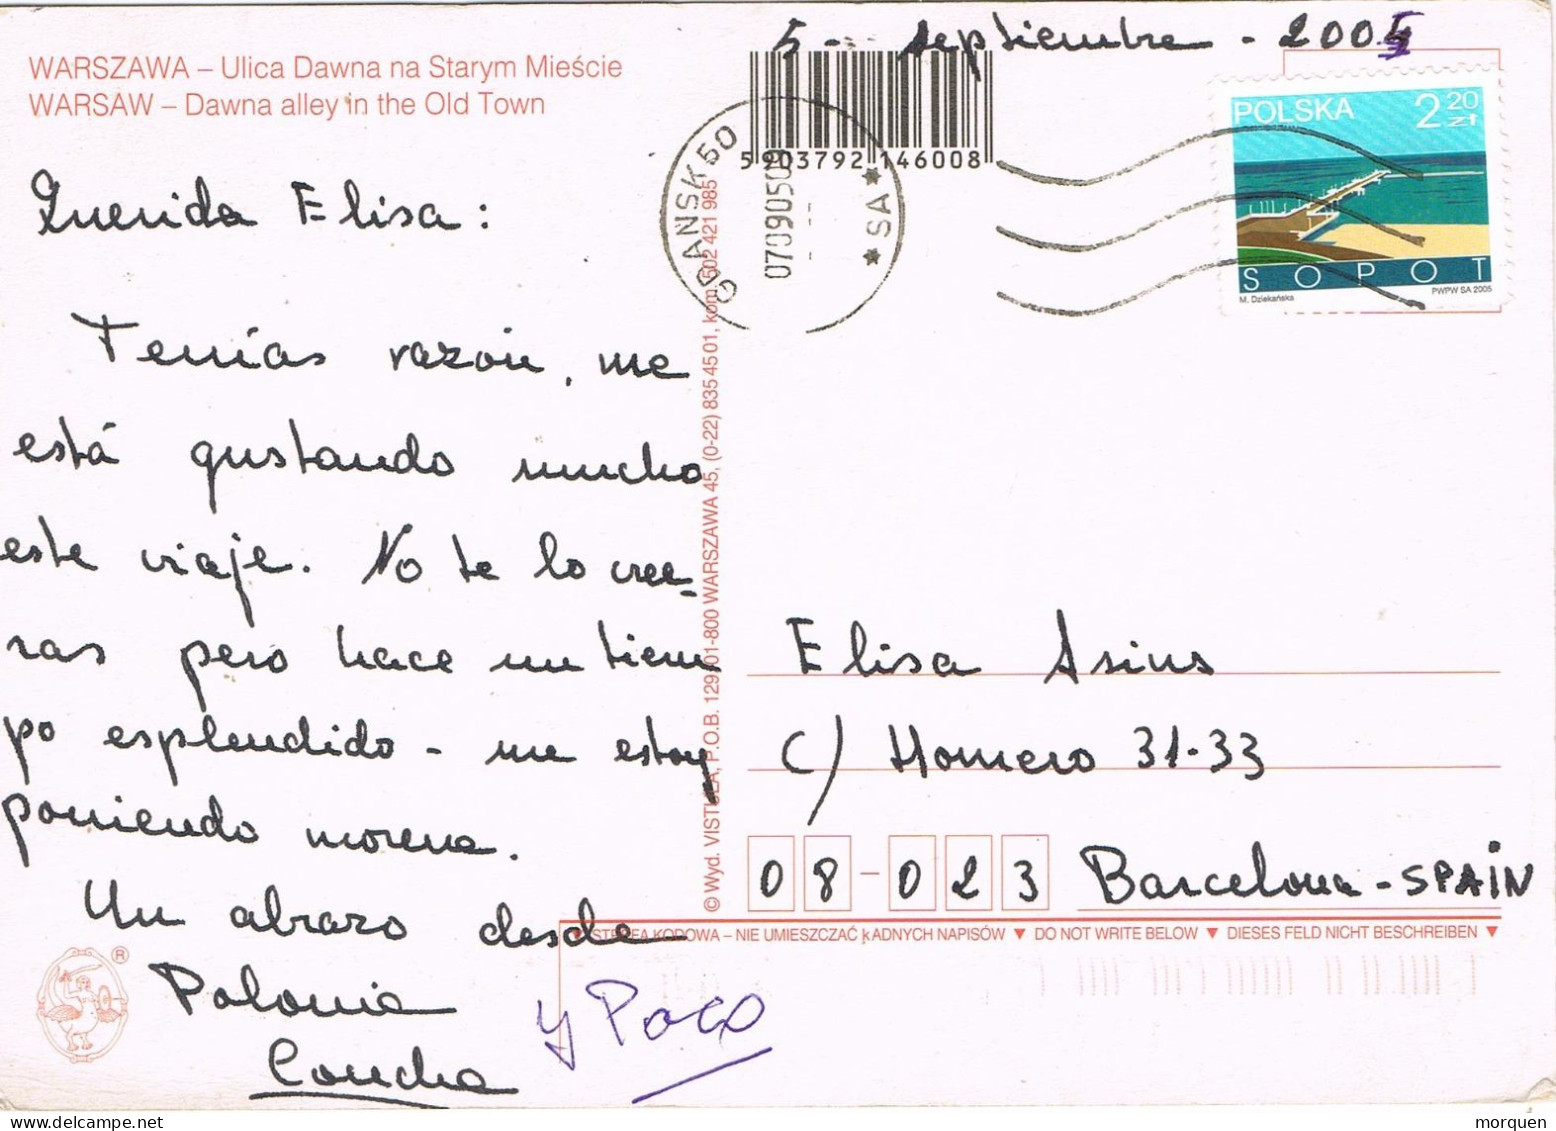 5 - septiembre - 2005
WARSZAWA – Ulica Dawna na Starym Mieście
WARSAW – Dawna alley in the Old Town
5 903792 146008
GDAŃSK 50
070905 09
* SA *
POLSKA 2 20 zł
SOPOT
M. Dziekańska
PWPW SA 2005
Querida Elisa:
Tenías razón, me
está gustando mucho
este viaje. No te lo cree-
ras pero hace un tiem
po esplendido - me estoy
poniendo morena.
Un abrazo desde
Polonia
Concha
y Paco
© Wyd. VISTULA, P.O.B. 129, 01-800 WARSZAWA 45, (0-22) 835 45 01, kom. 502 421 985
Elisa Asins
C/ Homero 31-33
08-023 Barcelona - SPAIN
▼ STREFA KODOWA – NIE UMIESZCZAĆ ŻADNYCH NAPISÓW ▼ DO NOT WRITE BELOW ▼ DIESES FELD NICHT BESCHREIBEN ▼
®
morquen